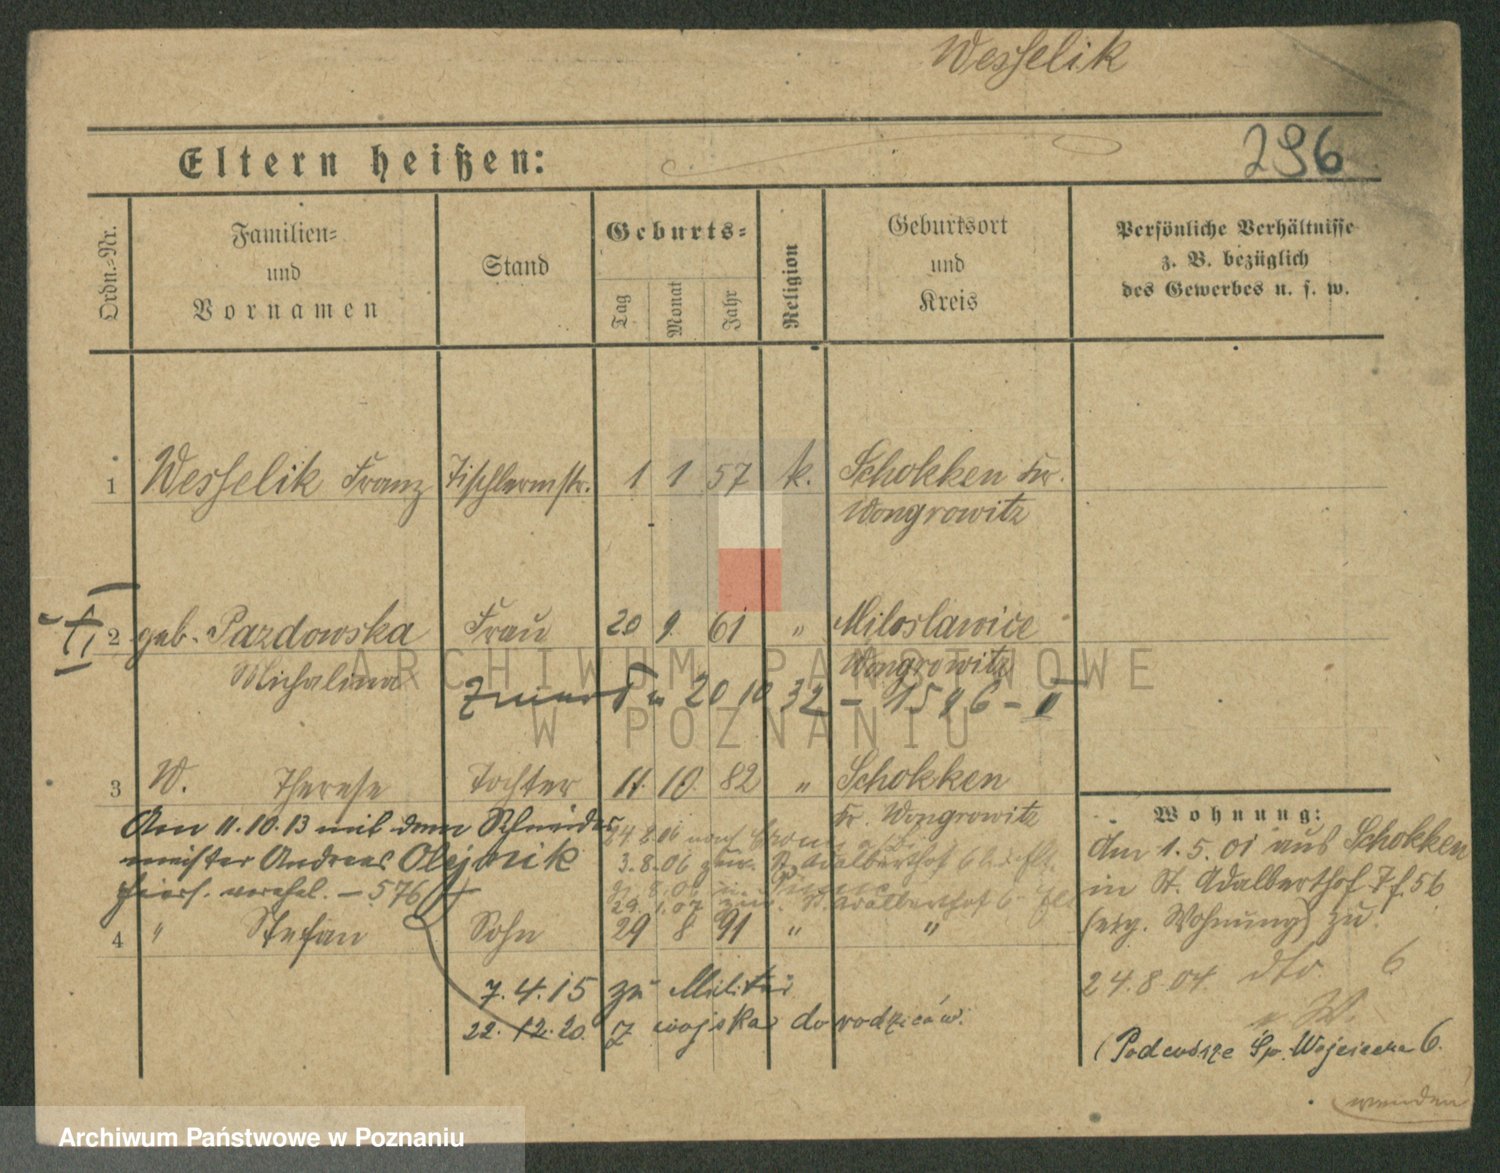 Wesselik
296
Eltern heißen:
Ordn.-Nr.
Familien-
und
Vornamen
Stand
Geburts-
Tag
Monat
Jahr
Religion
Geburtsort
und
Kreis
Persönliche Verhältnisse
z. B. bezüglich
des Gewerbes u. s. w.
1 Wesselik Franz Tischlermstr. 1 1 57 k. Schokken Kr.
Wongrowitz
2 geb. Pazdowska Frau 20 9. 61 " Miloslawice
Michalina Wongrowitz
20 10 32 - 1596 - II
3 W. Therese Tochter 11. 10. 82 " Schokken
Kr. Wongrowitz
Am 11.10.13 mit dem Schneider
meister Andreas Olejnik
hiers. verehel. - 576
24.8.06 nach
3.8.06 zur. St. Adalberthof 6
29.1.07 zur. St. Adalberthof 6
4 " Stefan Sohn 29 8 91 " "
7.4.15 zu Militär
22.12.20 z wojska do rodziców.
Wohnung:
Am 1.5.01 aus Schokken
in St. Adalberthof 7 f. 56
(eig. Wohnung) zu.
24.8.04. dto 6
W.
(Podwórze Św. Wojciecha 6.
wenden
ARCHIWUM PAŃSTWOWE
W POZNANIU
Archiwum Państwowe w Poznaniu